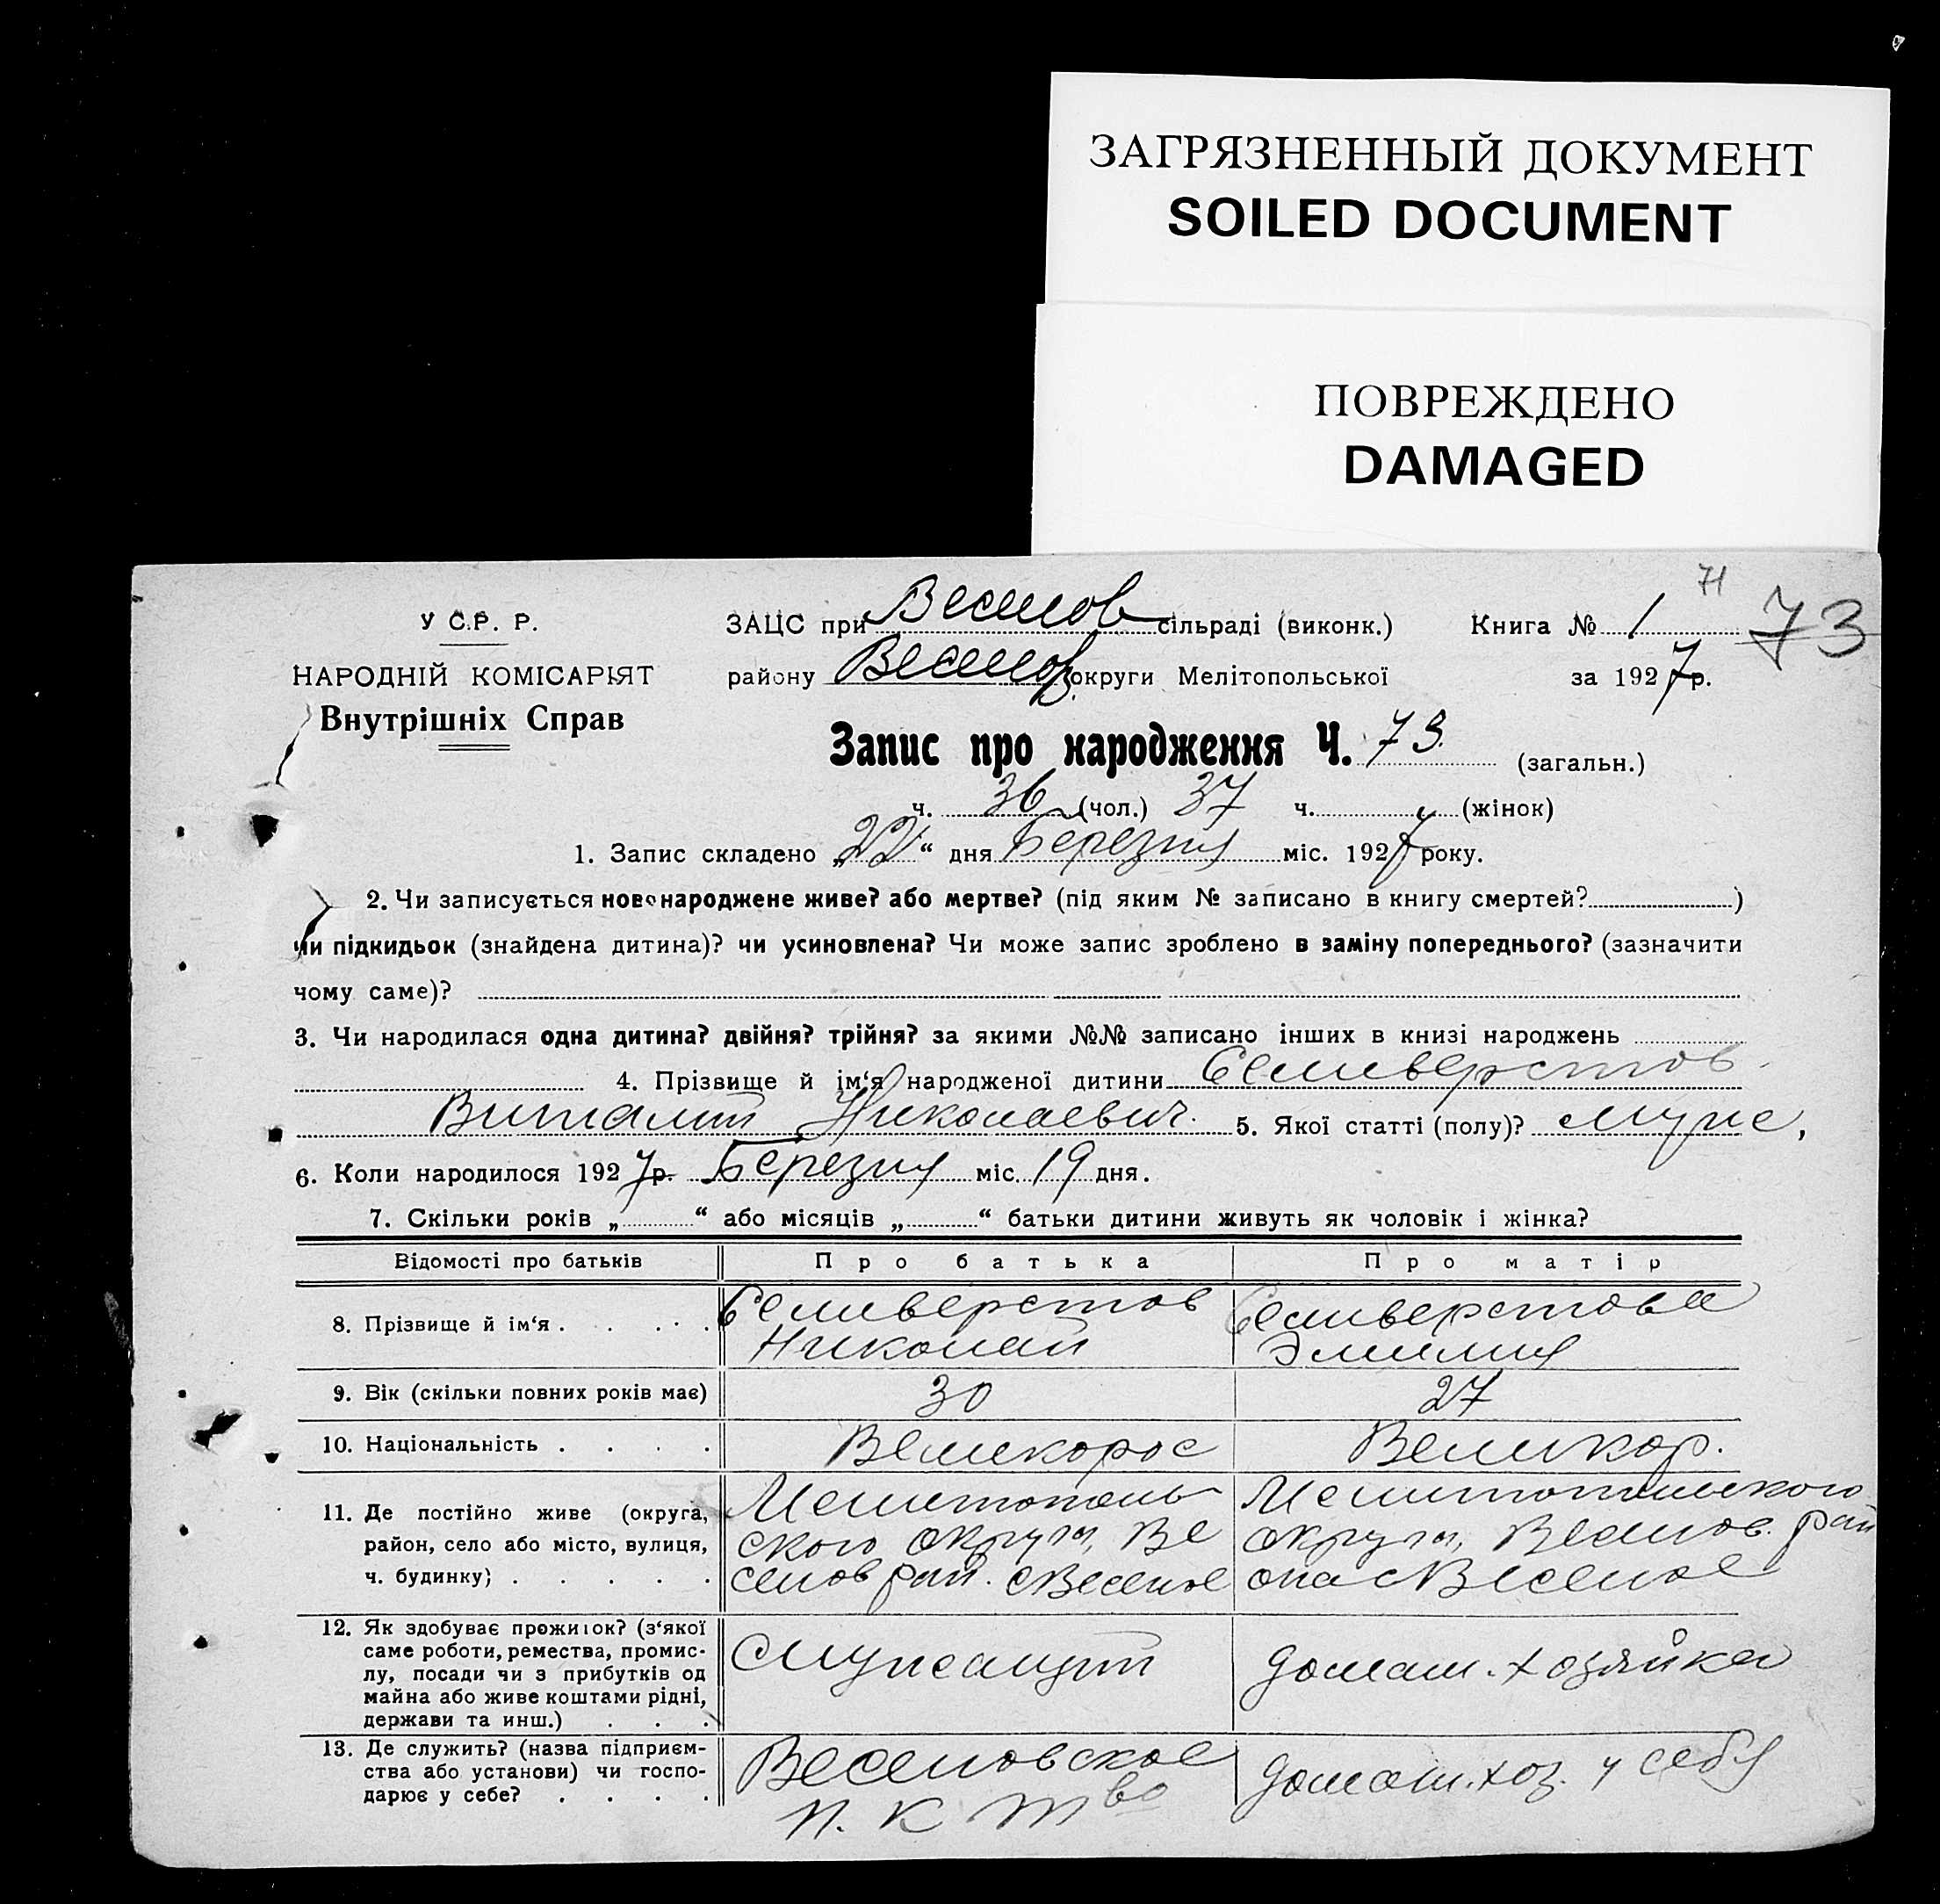 ЗАГРЯЗНЕННЫЙ ДОКУМЕНТ
SOILED DOCUMENT
ПОВРЕЖДЕНО
DAMAGED
71
У С.Р. Р.
ЗАЦС при Веселов сільраді (виконк.) Книга № 1 73
НАРОДНІЙ КОМІСАРІЯТ
району Веселов. округи Мелітопольської за 1927 р.
Внутрішніх Справ
Запис про народження Ч. 73. (загальн.)
ч. 36 (чол.) 37 ч. (жінок)
1. Запис складено „22“ дня Березня міс. 1927 року.
2. Чи записується новонароджене живе? або мертве? (під яким № записано в книгу смертей? )
чи підкидьок (знайдена дитина)? чи усиновлена? Чи може запис зроблено в заміну попереднього? (зазначити
чому саме)?
3. Чи народилася одна дитина? двійня? трійня? за якими №№ записано інших в книзі народжень
4. Прізвище й ім‘я народженої дитини Селиверстов
Виталий Николаевич. 5. Якої статті (полу)? мужс.
6. Коли народилося 1927 р. Березня міс. 19 дня.
7. Скільки років „ “ або місяців „ “ батьки дитини живуть як чоловік і жінка?
Відомості про батьків Про батька Про матір
8. Прізвище й ім‘я . . . . . Селиверстов Селиверстова
Николай Эмилия
9. Вік (скільки повних років має) 30 27
10. Національність . . . . Великорос Великор.
11. Де постійно живе (округа, Мелитополь Мелитопольского
район, село або місто, вулиця, ского округа, Ве округа, Веселов. рай
ч. будинку) . . . . . селов рай. с Веселое она с Веселое
12. Як здобуває прожиток? (з‘якої
саме роботи, ремества, промис-
лу, посади чи з прибутків од Служсащий домаш. хозяйка
майна або живе коштами рідні,
держави та инш.) . . .
13. Де служить? (назва підприєм- Веселовское домаш. хоз. у себя
ства або установи) чи госпо-
дарює у себе? . . . . п. к т во